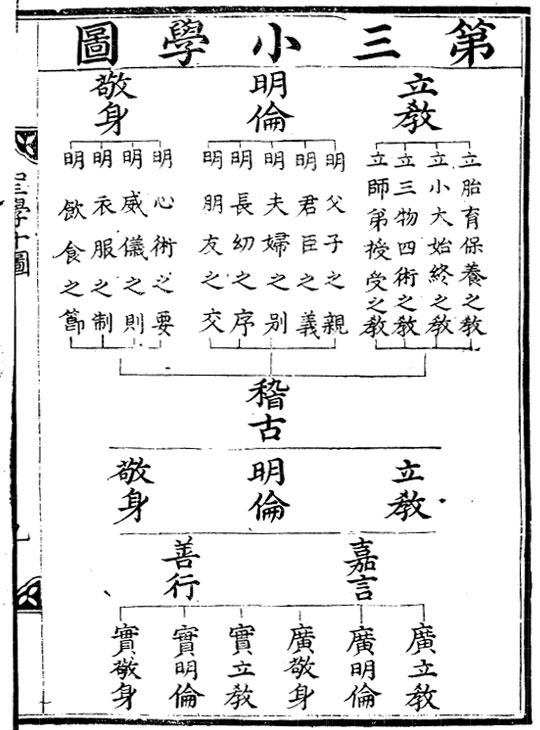 第三小學圖
立教
明倫
敬身
立胎育保養之教
立小大始終之教
立三物四術之教
立師弟授受之教
明父子之親
明君臣之義
明夫婦之別
明長幼之序
明朋友之交
明心術之要
明威儀之則
明衣服之制
明飲食之節
稽古
立教
明倫
敬身
嘉言
善行
廣立教
廣明倫
廣敬身
實立教
實明倫
實敬身
聖學十圖
九